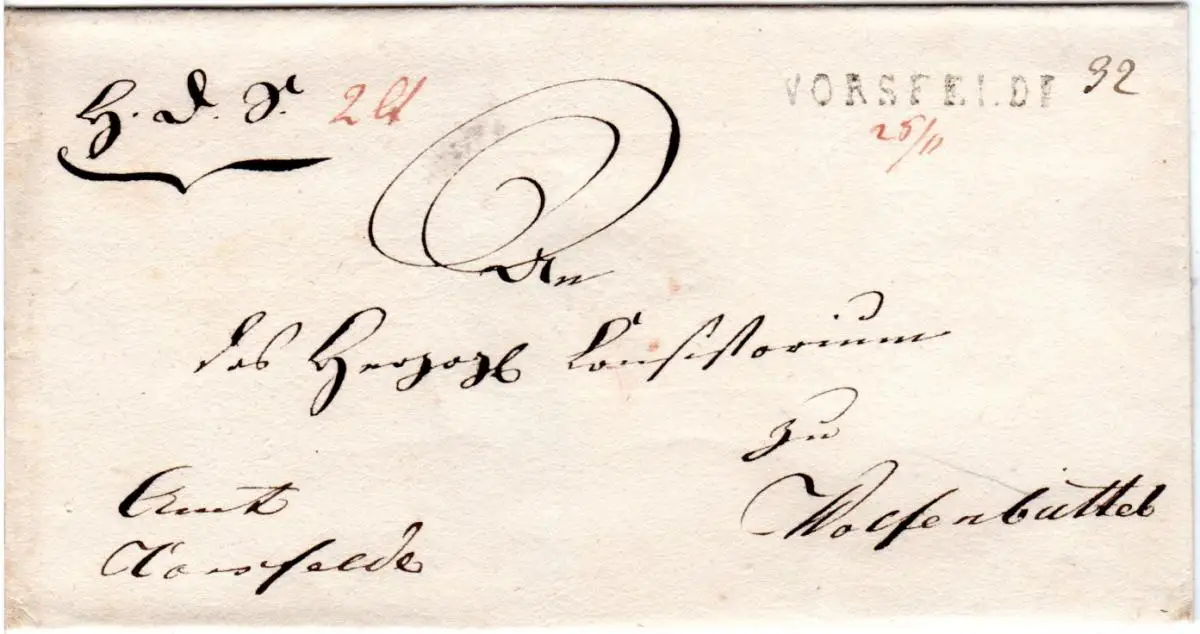 H. D. S. 2 lt VORSFELDE 32
25/11
An
das Herzogl Consistorium
zu
Amt Wolfenbüttel
Vorsfelde